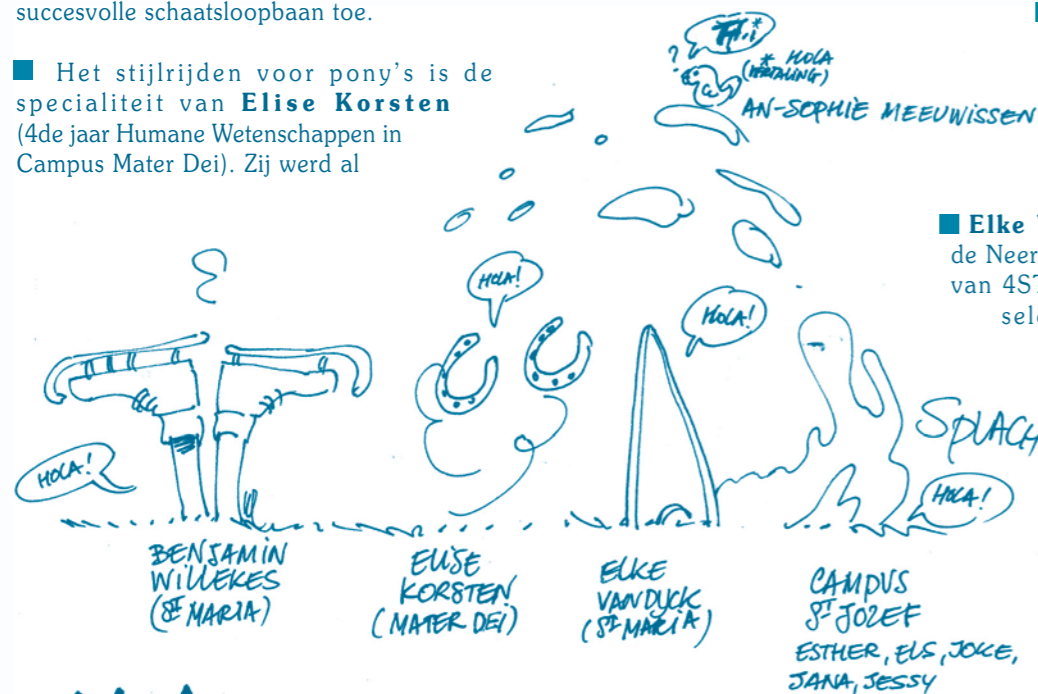 succesvolle schaatsloopbaan toe.
■ Het stijlrijden voor pony's is de
specialiteit van Elise Korsten
(4de jaar Humane Wetenschappen in
Campus Mater Dei). Zij werd al
?
* HOLA
(VERTALING)
AN-SOPHIE MEEUWISSEN
■ Elke
de Neer
van 4ST
sele
HOLA!
HOLA!
HOLA!
SPLACH
HOLA!
BENJAMIN
WILLEKES
(ST MARIA)
ELISE
KORSTEN
(MATER DEI)
ELKE
VANDYCK
(ST MARIA)
CAMPUS
ST JOZEF
ESTHER, ELS, JOKE,
JANA, JESSY